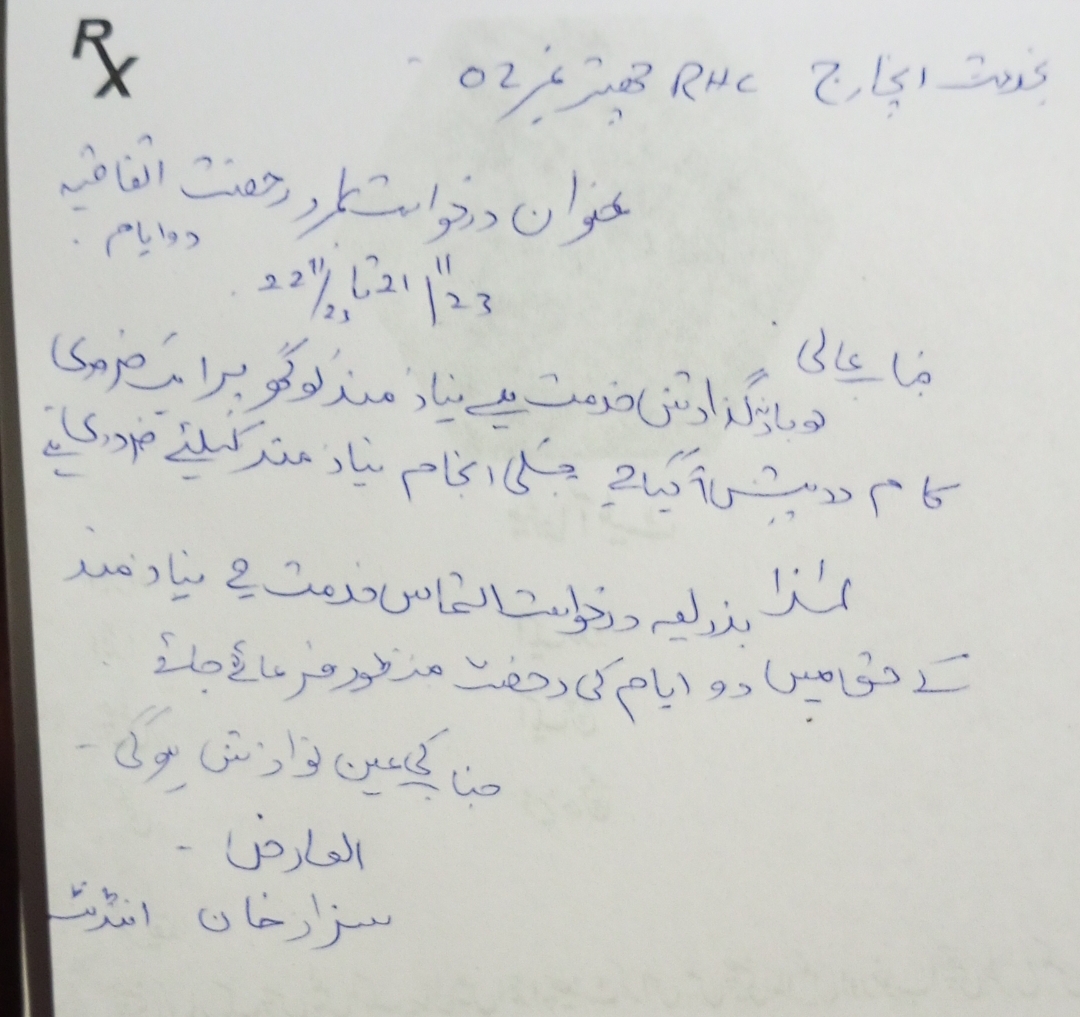 Rx
بخدمت انچارج RHC چھپتر نمبر 02
عنوان درخواست بمراد رخصت اتفاقیہ
دو ایام
21/11/23 تا 22/11/23
جناب عالی
مودبانہ گذارش خدمت ہے نیاز مند کو گھر پر ایک ضروری
کام درپیش آ گیا ہے جسکی انجام نیاز مند کیلئے ضروری ہے
لہٰذا بذریعہ درخواست التماس خدمت ہے نیاز مند
کے حق میں دو ایام کی رخصت منظور فرمائے جائے
جناب کی عین نوازش ہوگی -
العارض -
خان اٹنڈنٹ